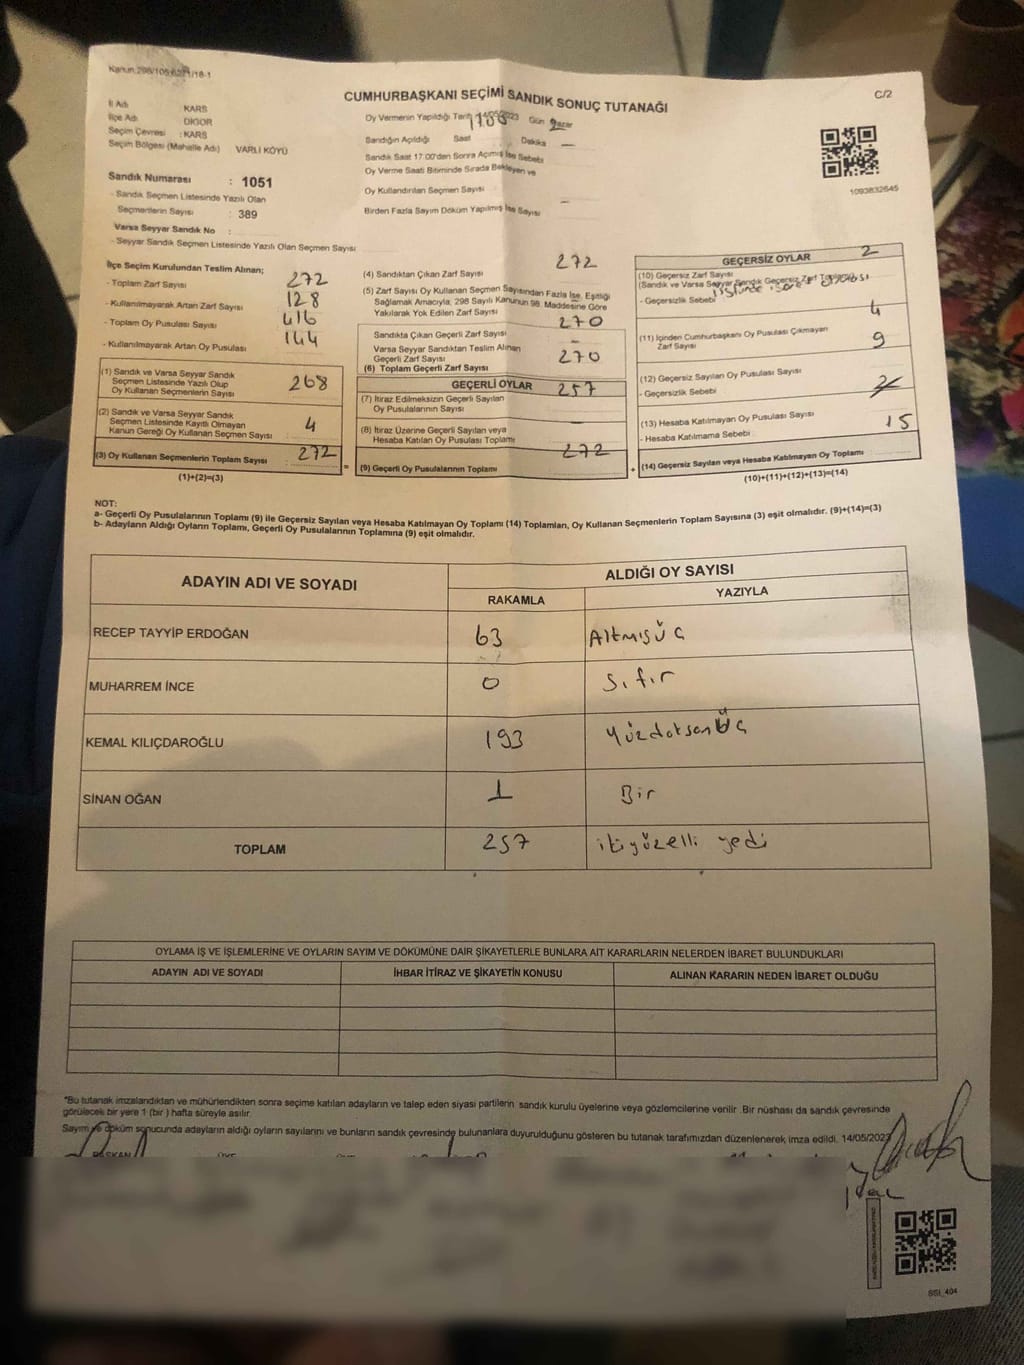 Kanun:298/105,6271/18-1
CUMHURBAŞKANI SEÇİMİ SANDIK SONUÇ TUTANAĞI
C/2
İl Adı KARS
İlçe Adı DİGOR
Seçim Çevresi : KARS
Seçim Bölgesi (Mahalle Adı) VARLI KÖYÜ
Sandık Numarası : 1051
- Sandık Seçmen Listesinde Yazılı Olan
Seçmenlerin Sayısı : 389
Varsa Seyyar Sandık No :
- Seyyar Sandık Seçmen Listesinde Yazılı Olan Seçmen Sayısı
Oy Vermenin Yapıldığı Tarih 14/05/2023 Gün Pazar
Sandığın Açıldığı Saat Dakika —
Sandık Saat 17:00'den Sonra Açımış İse Sebebi
Oy Verme Saati Bitiminde Sırada Bekleyen ve
Oy Kullandırılan Seçmen Sayısı
Birden Fazla Sayım Döküm Yapılmış İse Sayısı —
1093832645
İlçe Seçim Kurulundan Teslim Alınan;
- Toplam Zarf Sayısı 272
- Kullanılmayarak Artan Zarf Sayısı 128
- Toplam Oy Pusulası Sayısı 416
- Kullanılmayarak Artan Oy Pusulası 144
(1) Sandık ve Varsa Seyyar Sandık
Seçmen Listesinde Yazılı Olup
Oy Kullanan Seçmenlerin Sayısı 268
(2) Sandık ve Varsa Seyyar Sandık
Seçmen Listesinde Kayıtlı Olmayan
Kanun Gereği Oy Kullanan Seçmen Sayısı 4
(3) Oy Kullanan Seçmenlerin Toplam Sayısı 272
(1)+(2)=(3)
=
(4) Sandıktan Çıkan Zarf Sayısı 272
(5) Zarf Sayısı Oy Kullanan Seçmen Sayısından Fazla İse, Eşitliği
Sağlamak Amacıyla, 298 Sayılı Kanunun 98. Maddesine Göre
Yakılarak Yok Edilen Zarf Sayısı —
Sandıkta Çıkan Geçerli Zarf Sayısı 270
Varsa Seyyar Sandıktan Teslim Alınan
Geçerli Zarf Sayısı —
(6) Toplam Geçerli Zarf Sayısı 270
GEÇERLİ OYLAR
(7) İtiraz Edilmeksizin Geçerli Sayılan
Oy Pusulalarının Sayısı 257
(8) İtiraz Üzerine Geçerli Sayılan veya
Hesaba Katılan Oy Pusulası Toplamı —
(9) Geçerli Oy Pusulalarının Toplamı 272
+
GEÇERSİZ OYLAR
(10) Geçersiz Zarf Sayısı 2
(Sandık ve Varsa Seyyar Sandık Geçersiz Zarf Toplamı)
- Geçersizlik Sebebi
(11) İçinden Cumhurbaşkanı Oy Pusulası Çıkmayan
Zarf Sayısı 4
(12) Geçersiz Sayılan Oy Pusulası Sayısı 9
- Geçersizlik Sebebi
(13) Hesaba Katılmayan Oy Pusulası Sayısı
- Hesaba Katılmama Sebebi
(14) Geçersiz Sayılan veya Hesaba Katılmayan Oy Toplamı 15
(10)+(11)+(12)+(13)=(14)
NOT:
a- Geçerli Oy Pusulalarının Toplamı (9) ile Geçersiz Sayılan veya Hesaba Katılmayan Oy Toplamı (14) Toplamları, Oy Kullanan Seçmenlerin Toplam Sayısına (3) eşit olmalıdır. (9)+(14)=(3)
b- Adayların Aldığı Oyların Toplamı, Geçerli Oy Pusulalarının Toplamına (9) eşit olmalıdır.
ADAYIN ADI VE SOYADI ALDIĞI OY SAYISI
RAKAMLA YAZIYLA
RECEP TAYYİP ERDOĞAN 63 Altmışüç
MUHARREM İNCE 0 Sıfır
KEMAL KILIÇDAROĞLU 193 Yüzdoksanüç
SİNAN OĞAN 1 Bir
TOPLAM 257 ikiyüzelli yedi
OYLAMA İŞ VE İŞLEMLERİNE VE OYLARIN SAYIM VE DÖKÜMÜNE DAİR ŞİKAYETLERLE BUNLARA AİT KARARLARIN NELERDEN İBARET BULUNDUKLARI
ADAYIN ADI VE SOYADI İHBAR İTİRAZ VE ŞİKAYETİN KONUSU ALINAN KARARIN NEDEN İBARET OLDUĞU
*Bu tutanak imzalandıktan ve mühürlendikten sonra seçime katılan adayların ve talep eden siyasi partilerin sandık kurulu üyelerine veya gözlemcilerine verilir .Bir nüshası da sandık çevresinde
görülecek bir yere 1 (bir ) hafta süreyle asılır.
Sayım ve döküm sonucunda adayların aldığı oyların sayılarını ve bunların sandık çevresinde bulunanlara duyurulduğunu gösteren bu tutanak tarafımızdan düzenlenerek imza edildi. 14/05/2023
BAŞKAN ÜYE ÜYE
SSI_404